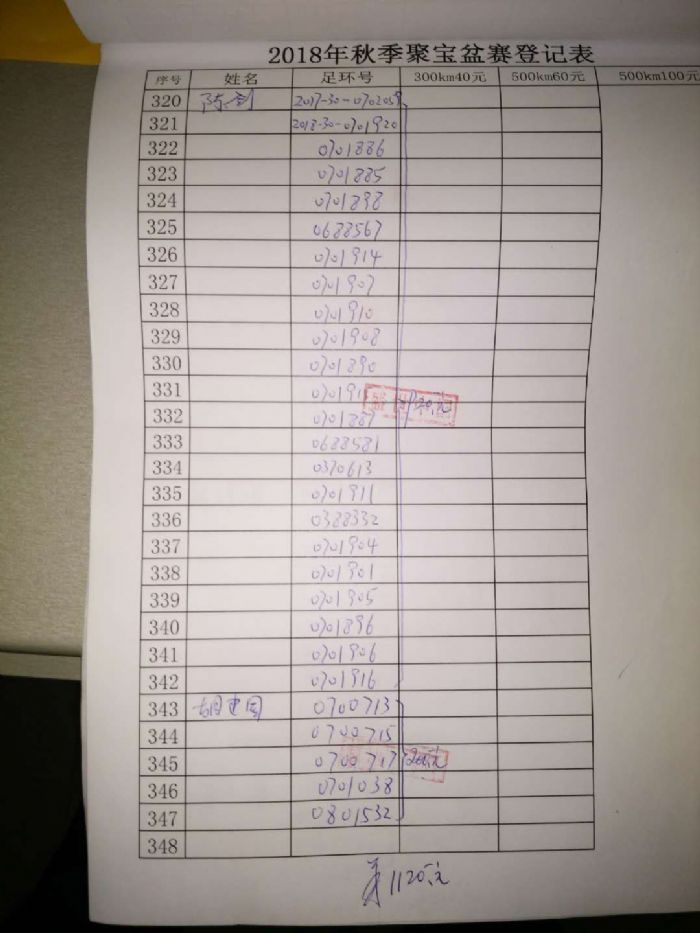 2018年秋季聚宝盆赛登记表
序号 姓名 足环号 300km40元 500km60元 500km100元
320 陈剑 2017-30-0702059
321 2018-30-0701920
322 0701886
323 0701885
324 0701898
325 0688567
326 0701914
327 0701907
328 0701910
329 0701908
330 0701890
331
332 0701887
333 0688581
334 0370613
335 0701911
336 0388332
337 0701904
338 0701901
339 0701905
340 0701896
341 0701906
342 0701916
343 0700713
344 0700715
345 0700717 200元
346 0701038
347 0801532
348
1120元